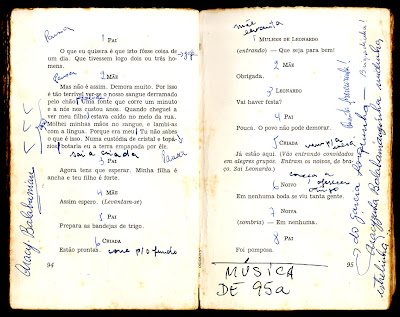 Pausa
1 PAI
O que eu quisera é que isto fôsse coisa de
um dia. Que tivessem logo dois ou três ho-
mens.
Pausa
2 MÃE
Mas não é assim. Demora muito. Por isso
é tão terrível ver-se o nosso sangue derramado
pelo chão. Uma fonte que corre um minuto
e a nós nos custou anos. Quando cheguei a
ver meu filho, estava caído no meio da rua.
Molhei minhas mãos no sangue, e lambi-as
com a língua. Porque era meu. Tu não sabes
o que é isso. Numa custódia de cristal e topá-
zios botaria eu a terra empapada por êle.
sai a criada
Pausa
3 PAI
Agora tens que esperar. Minha filha é
ancha e teu filho é forte.
4 MÃE
Assim espero. (Levantam-se)
5 PAI
Prepara as bandejas de trigo.
6 CRIADA
Estão prontas. corre p/o fundo
94
mãe
levanta
1 MULHER DE LEONARDO
(entrando) — Que seja para bem!
2 MÃE
Obrigada.
3 LEONARDO
Vai haver festa?
4 PAI
Pouca. O povo não pode demorar.
5 CRIADA
Já estão aqui. (Vão entrando convidados
em alegres grupos. Entram os noivos, de bra-
ço. Sai Leonardo.)
6 NOIVO
Em nenhuma boda se viu tanta gente.
7 NOIVA
(sombria) — Em nenhuma.
8 PAI
Foi pomposa.
95
MÚSICA
DE 95a